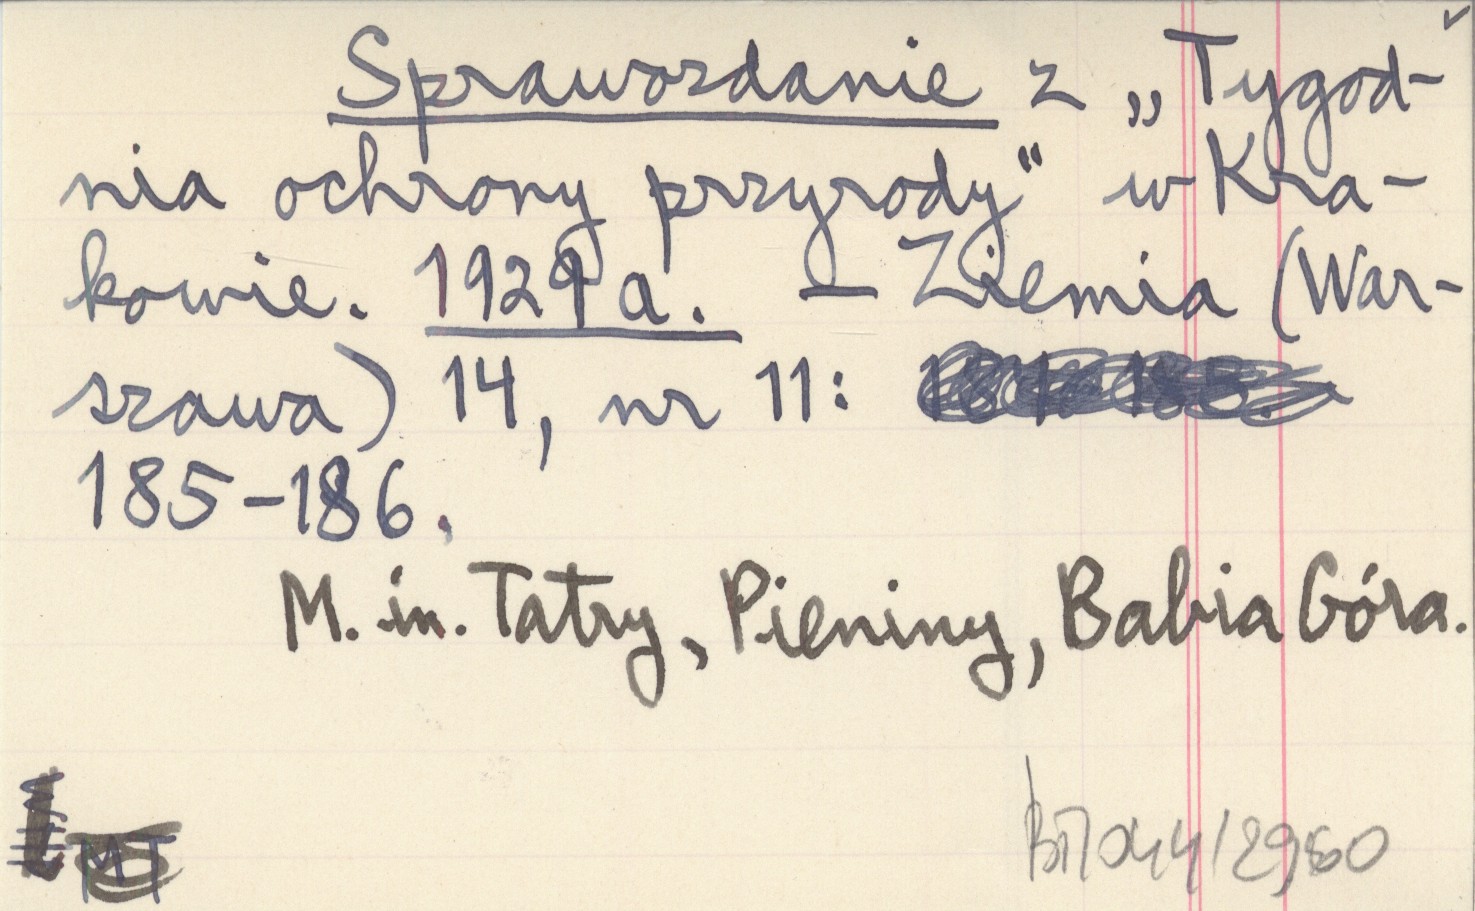 Sprawozdanie z „Tygod-
nia ochrony przyrody" w Kra-
kowie. 1929 a. – Ziemia (War-
szawa) 14, nr 11:
185-186.
M. in. Tatry, Pieniny, Babia Góra.
MT